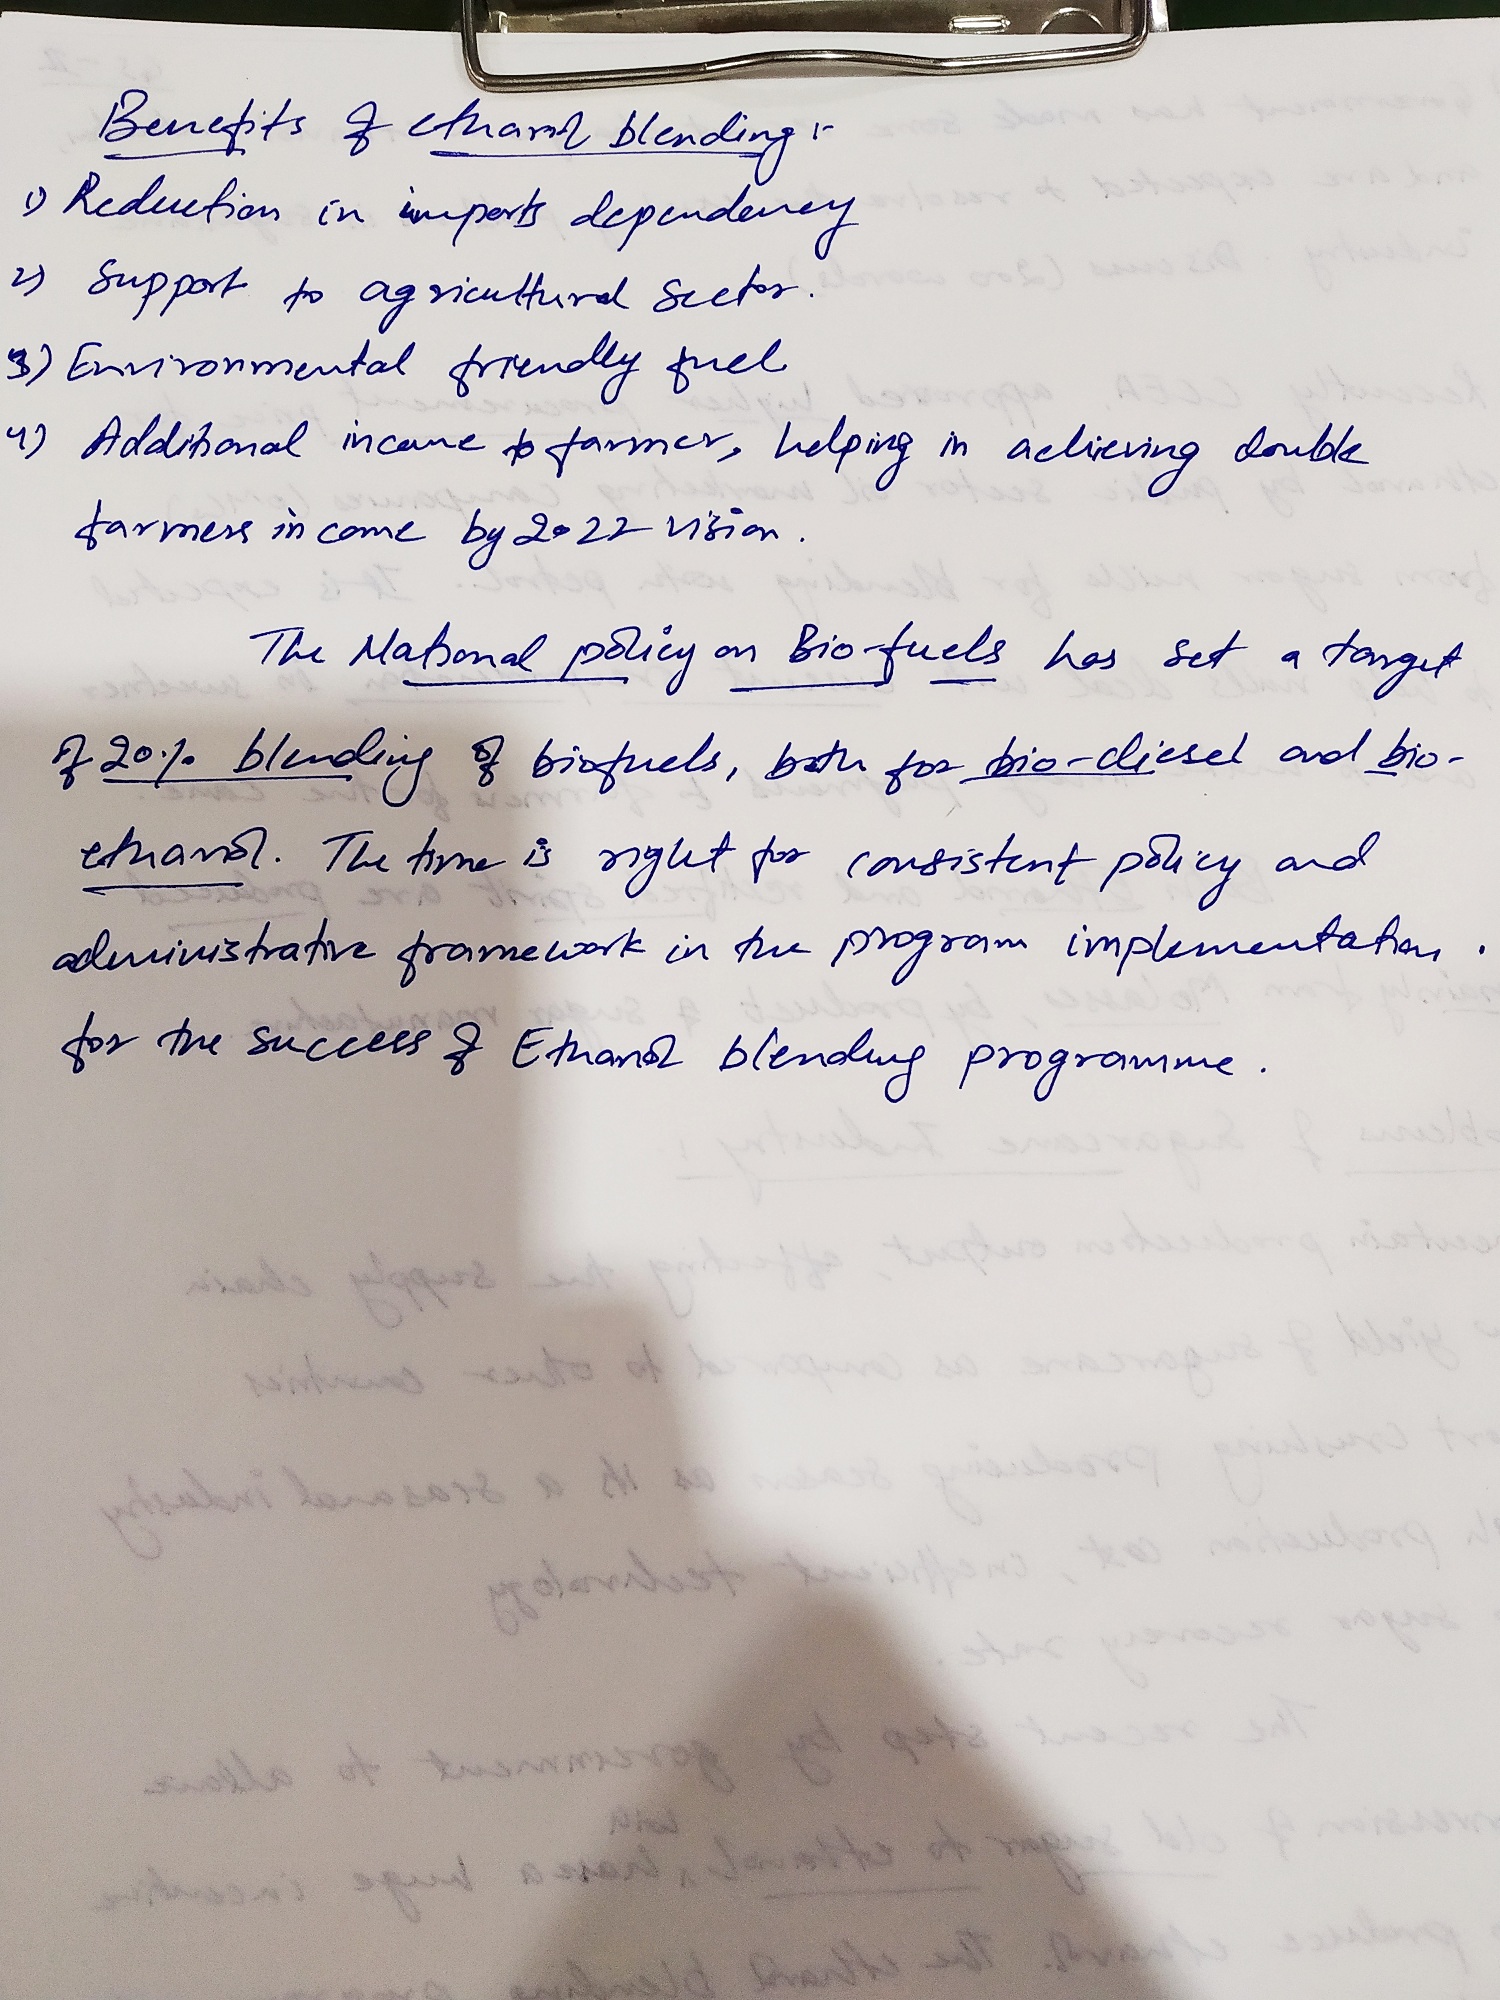 Benefits of ethanol blending :-
1) Reduction in imports dependency
2) Support to agricultural sector.
3) Environmental friendly fuel
4) Additional income to farmer, helping in achieving double
farmers income by 2022 vision.
The National policy on Bio-fuels has set a target
of 20% blending of biofuels, both for bio-diesel and bio-
ethanol. The time is right for consistent policy and
administrative framework in the program implementation.
for the success of Ethanol blending programme.